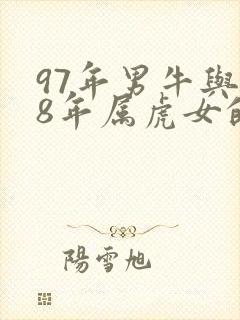 97年男牛與
8年属虎女的
陽雪旭